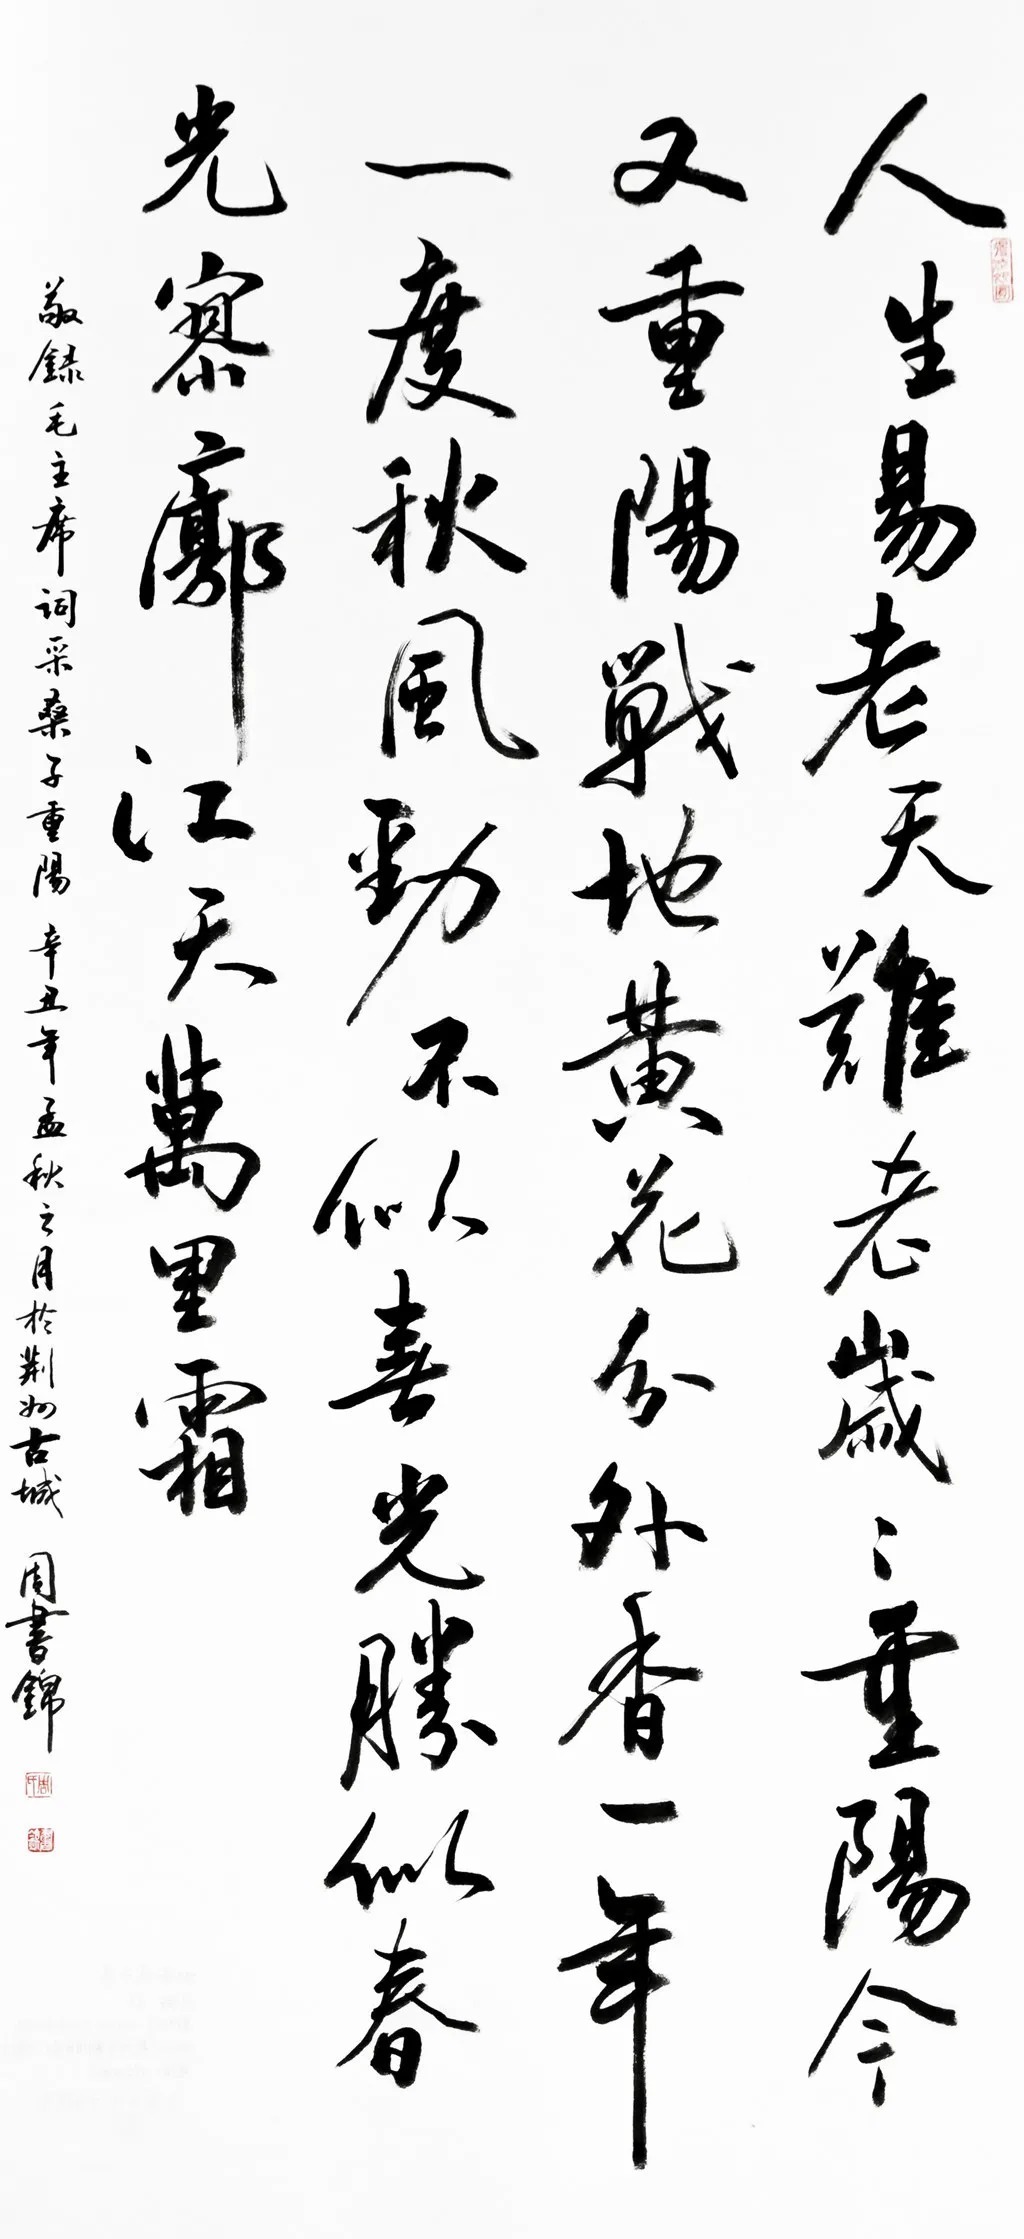 人生易老天難老歲〻重陽今
又重陽戰地黃花分外香一年
一度秋風勁不似春光勝似春
光寮廓江天萬里霜
敬録毛主席詞采桑子重陽 辛丑年孟秋之月於荆州古城 周書錦